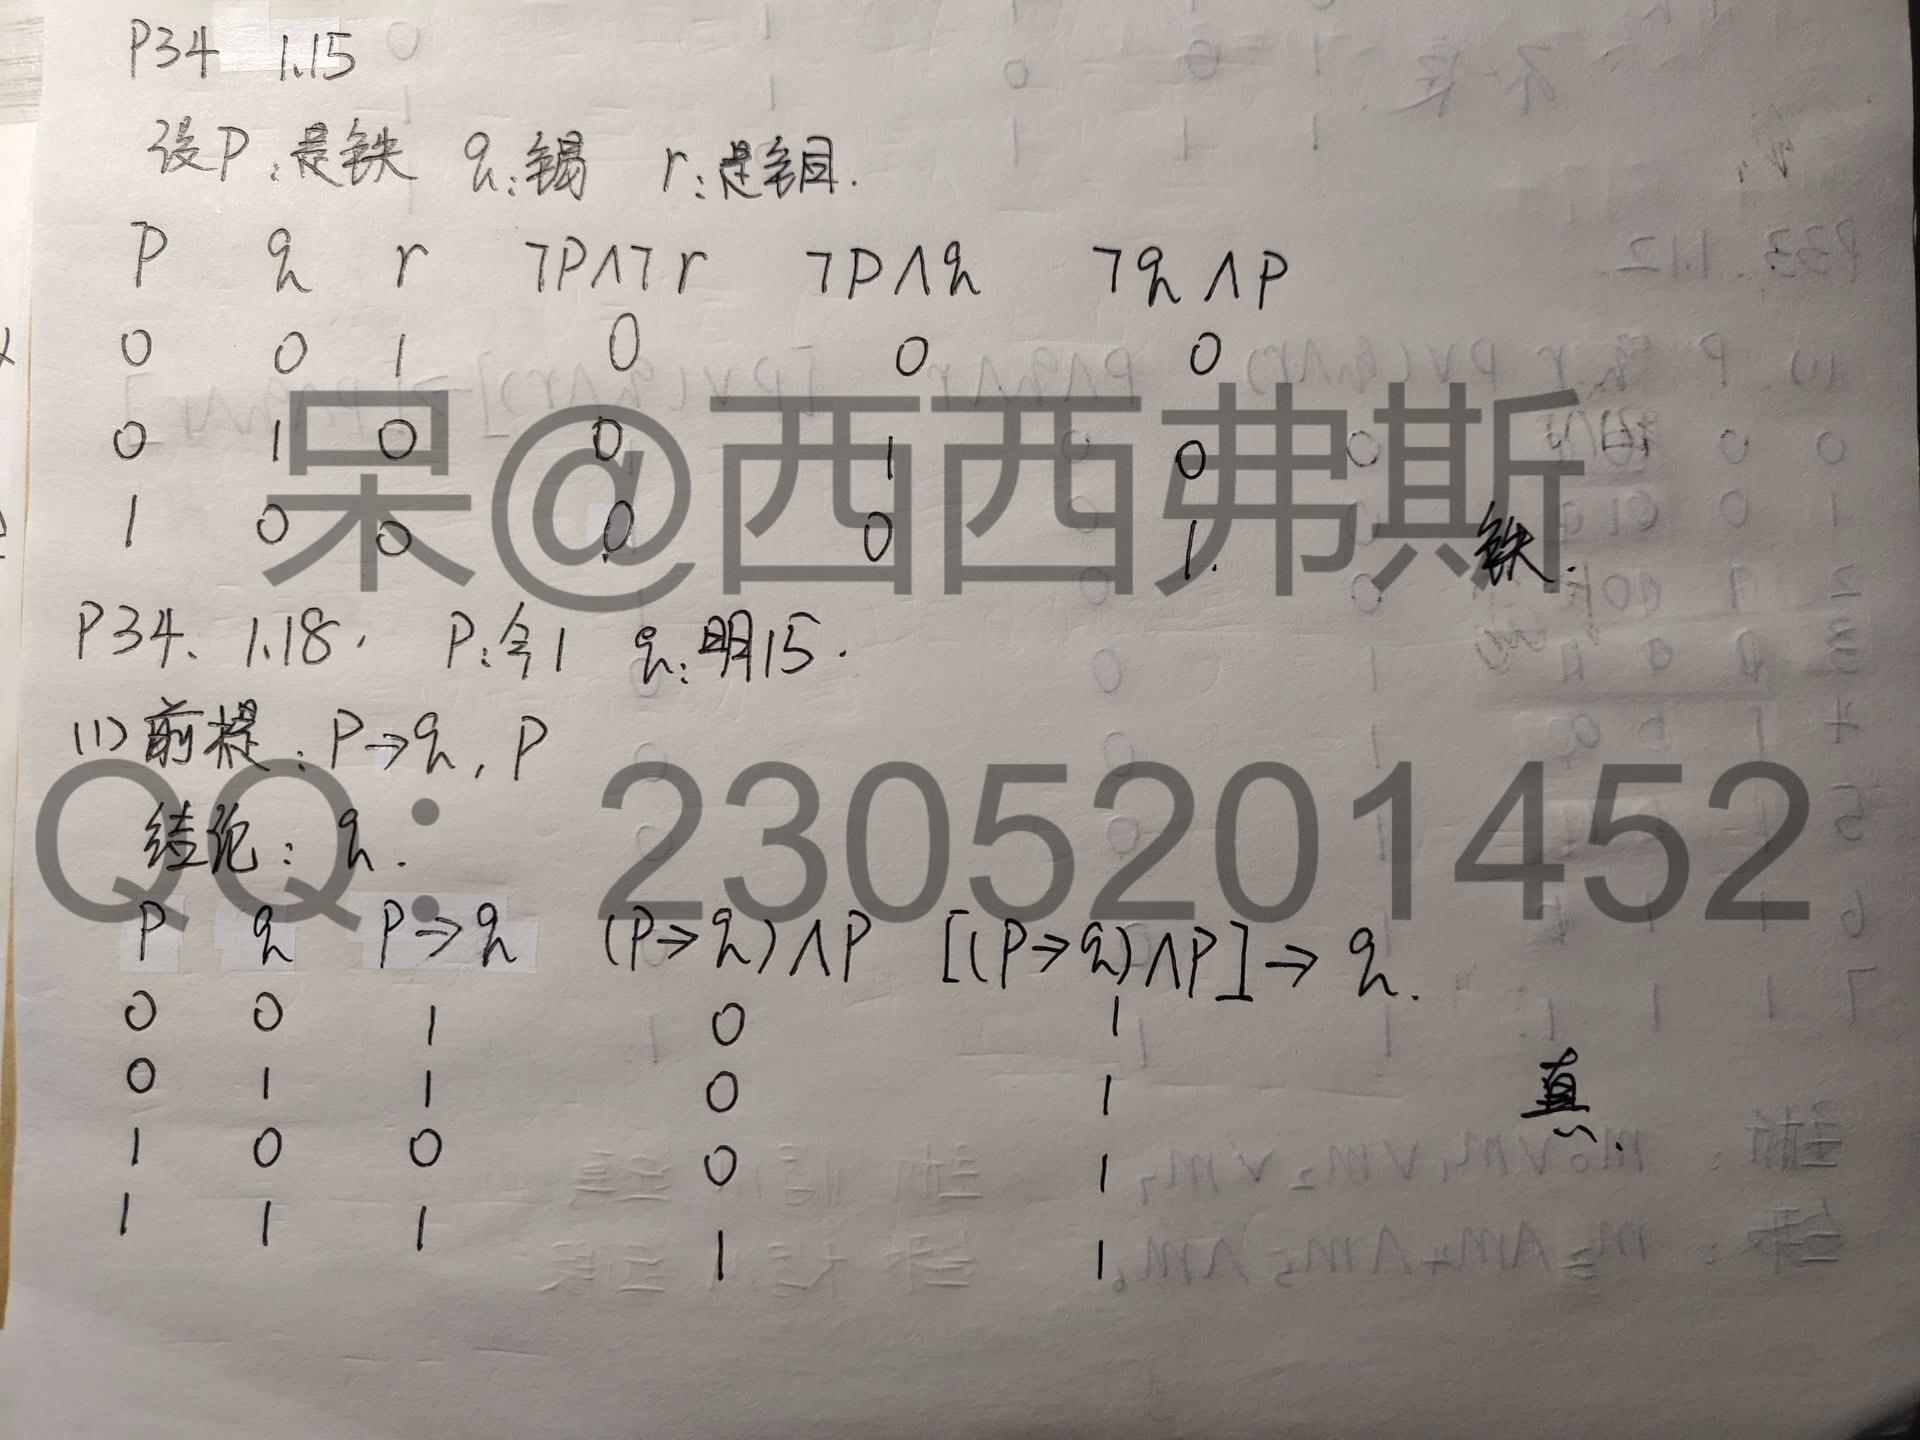 P34 1.15
设P:是铁 q:锡 r:是铜.
P q r ¬P∧¬r ¬P∧q ¬q∧P
0 0 1 0 0 0
呆@西西弗斯
0 1 0 0 1 0
1 0 0 0 0 1. 铁.
P34、1.18. P:今1 q:明15.
(1)前提:P→q,P
QQ:2305201452
结论:q.
P q P→q (P→q)∧P [(P→q)∧P]→q.
0 0 1 0 1
0 1 1 0 1 真.
1 0 0 0 1
1 1 1 1 1